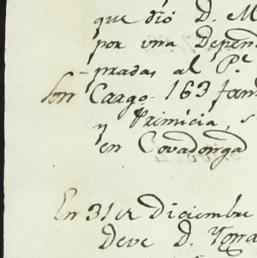 que dió D. M
por una Depen
pradas al P.e
Son Cargo. 163 fan
y Primicia, s
en Covadonga
En 31 de Diciembre
Deve D.